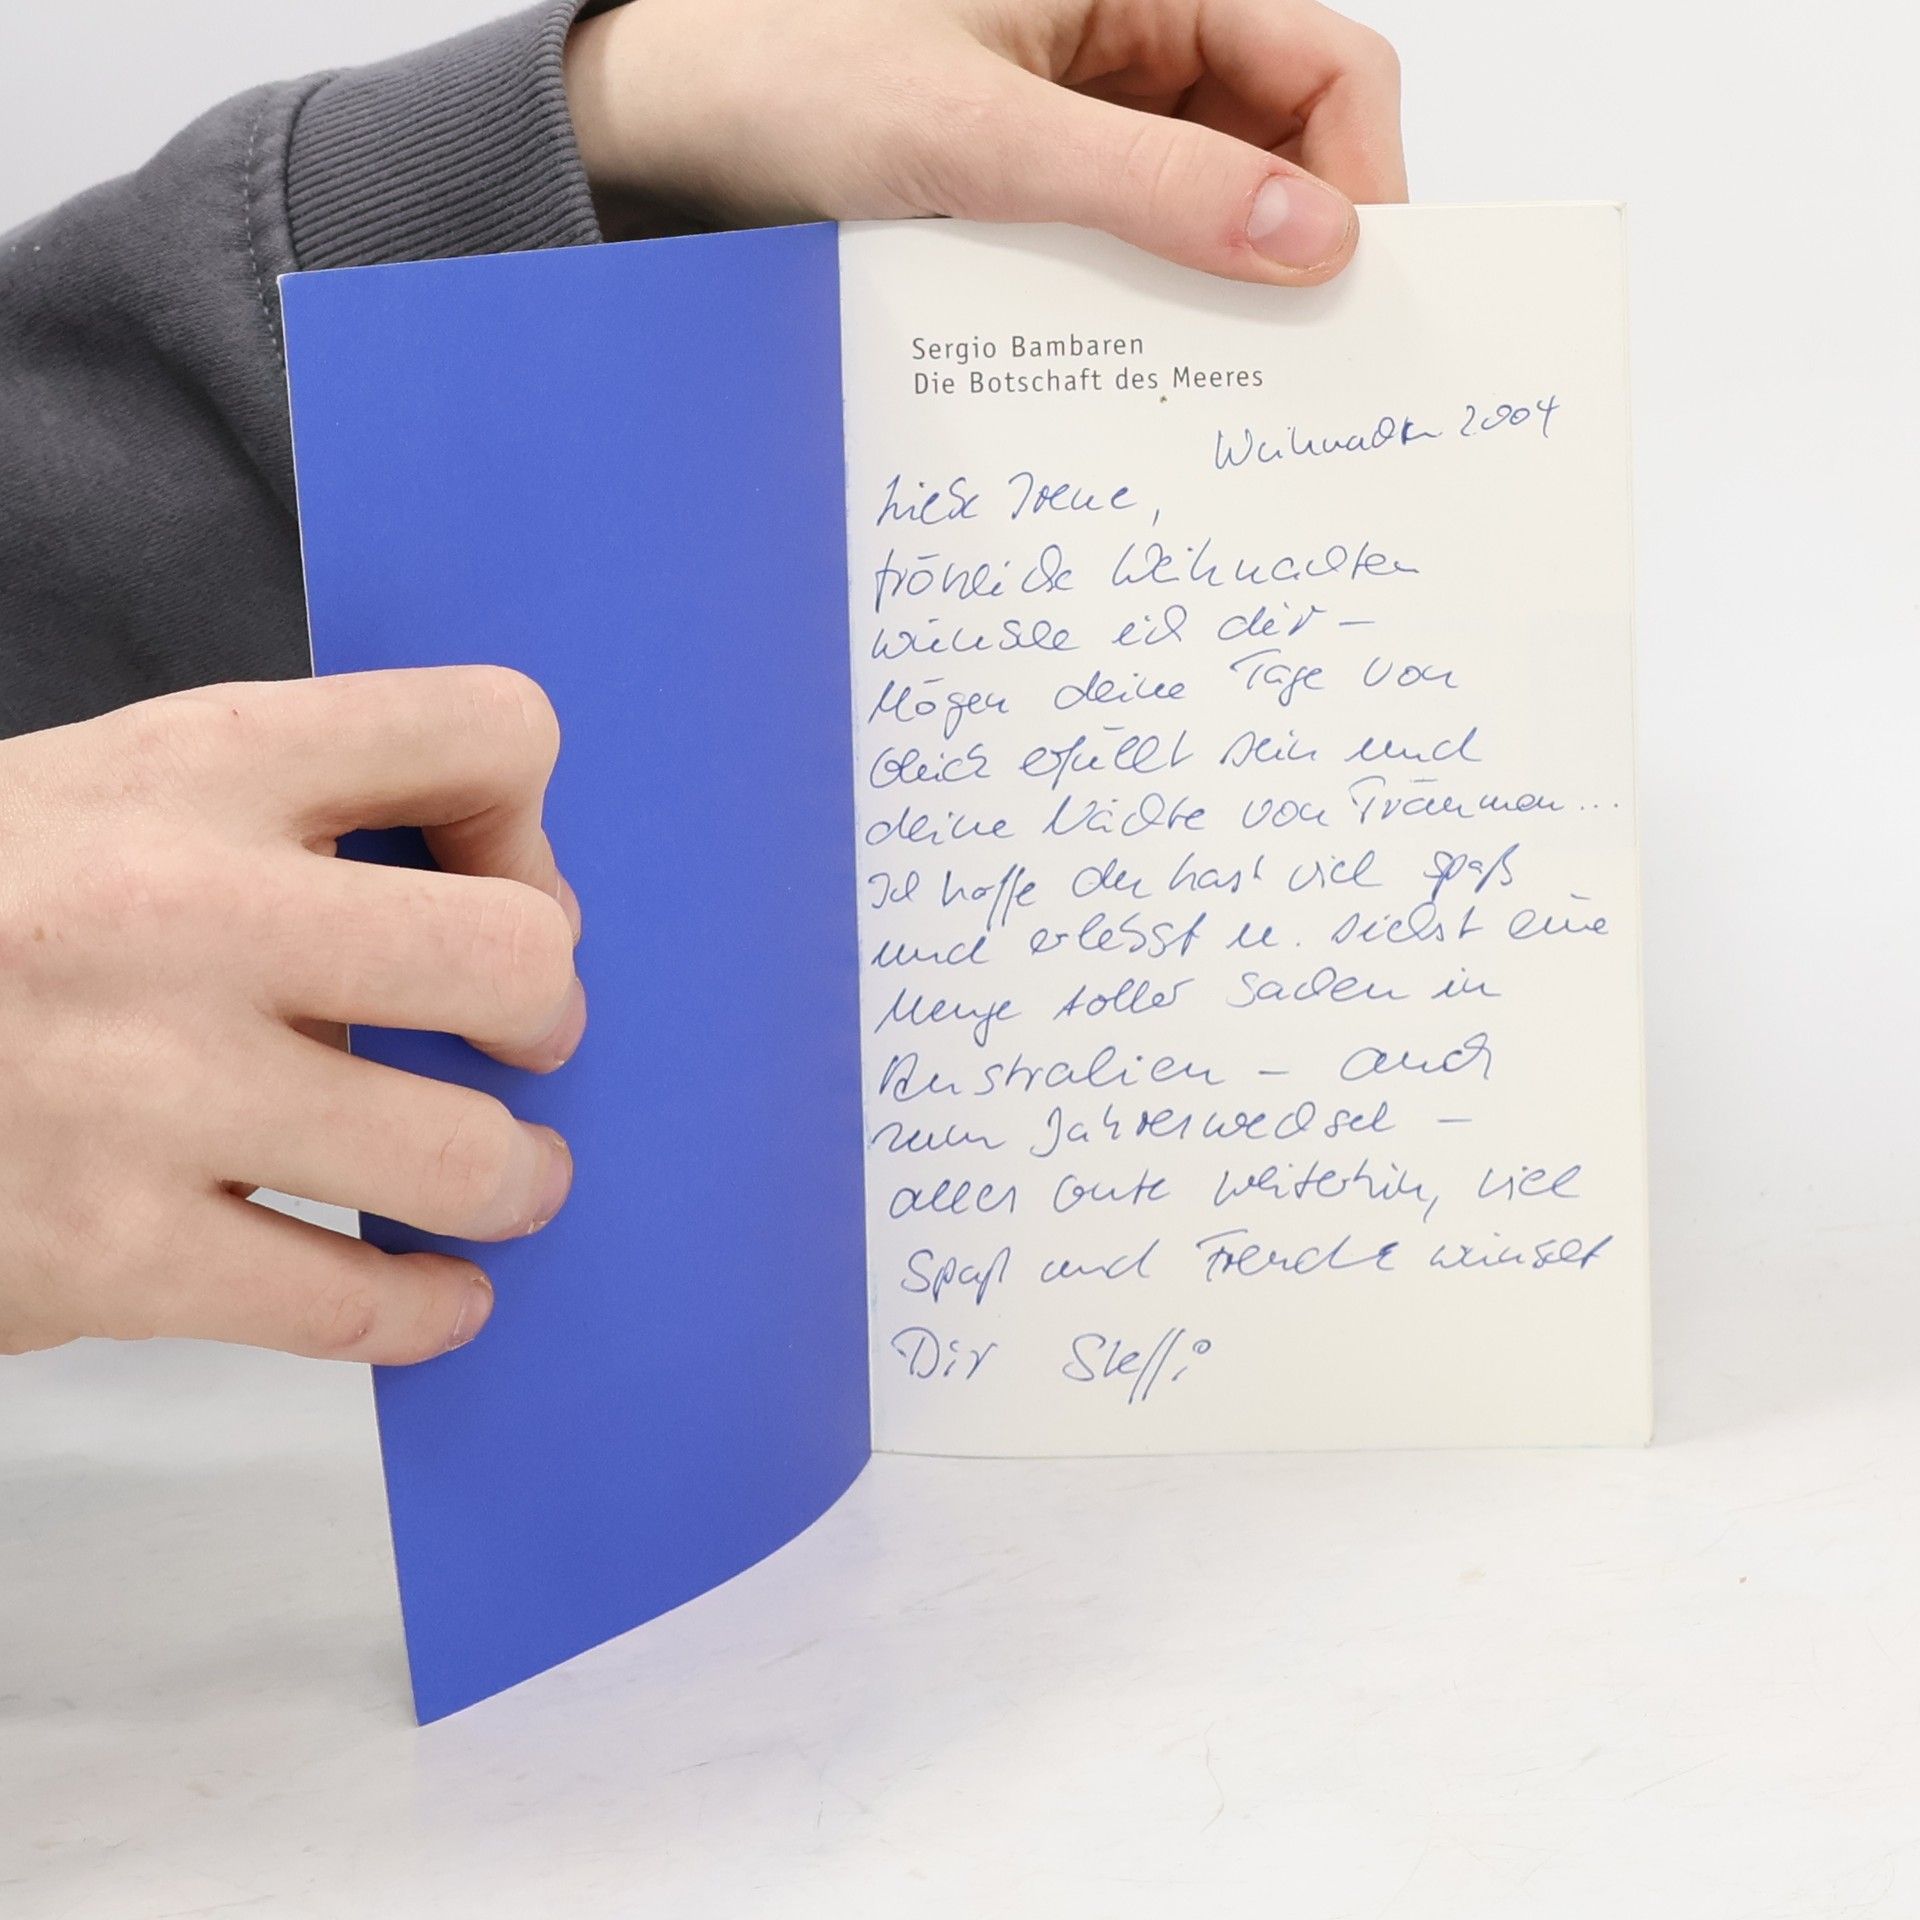 Sergio Bambaren
Die Botschaft des Meeres
Weihnachten 2004
Liebe Irene,
fröhliche Weihnachten
wünsche ich dir –
Mögen deine Tage von
Glück erfüllt sein und
deine Nächte von Träumen...
Ich hoffe du hast viel Spaß
und erlebst u. siehst eine
Menge toller Sachen in
Australien – auch
zum Jahreswechsel –
alles Gute weiterhin, viel
Spaß und Freude wünscht
Dir Steffi